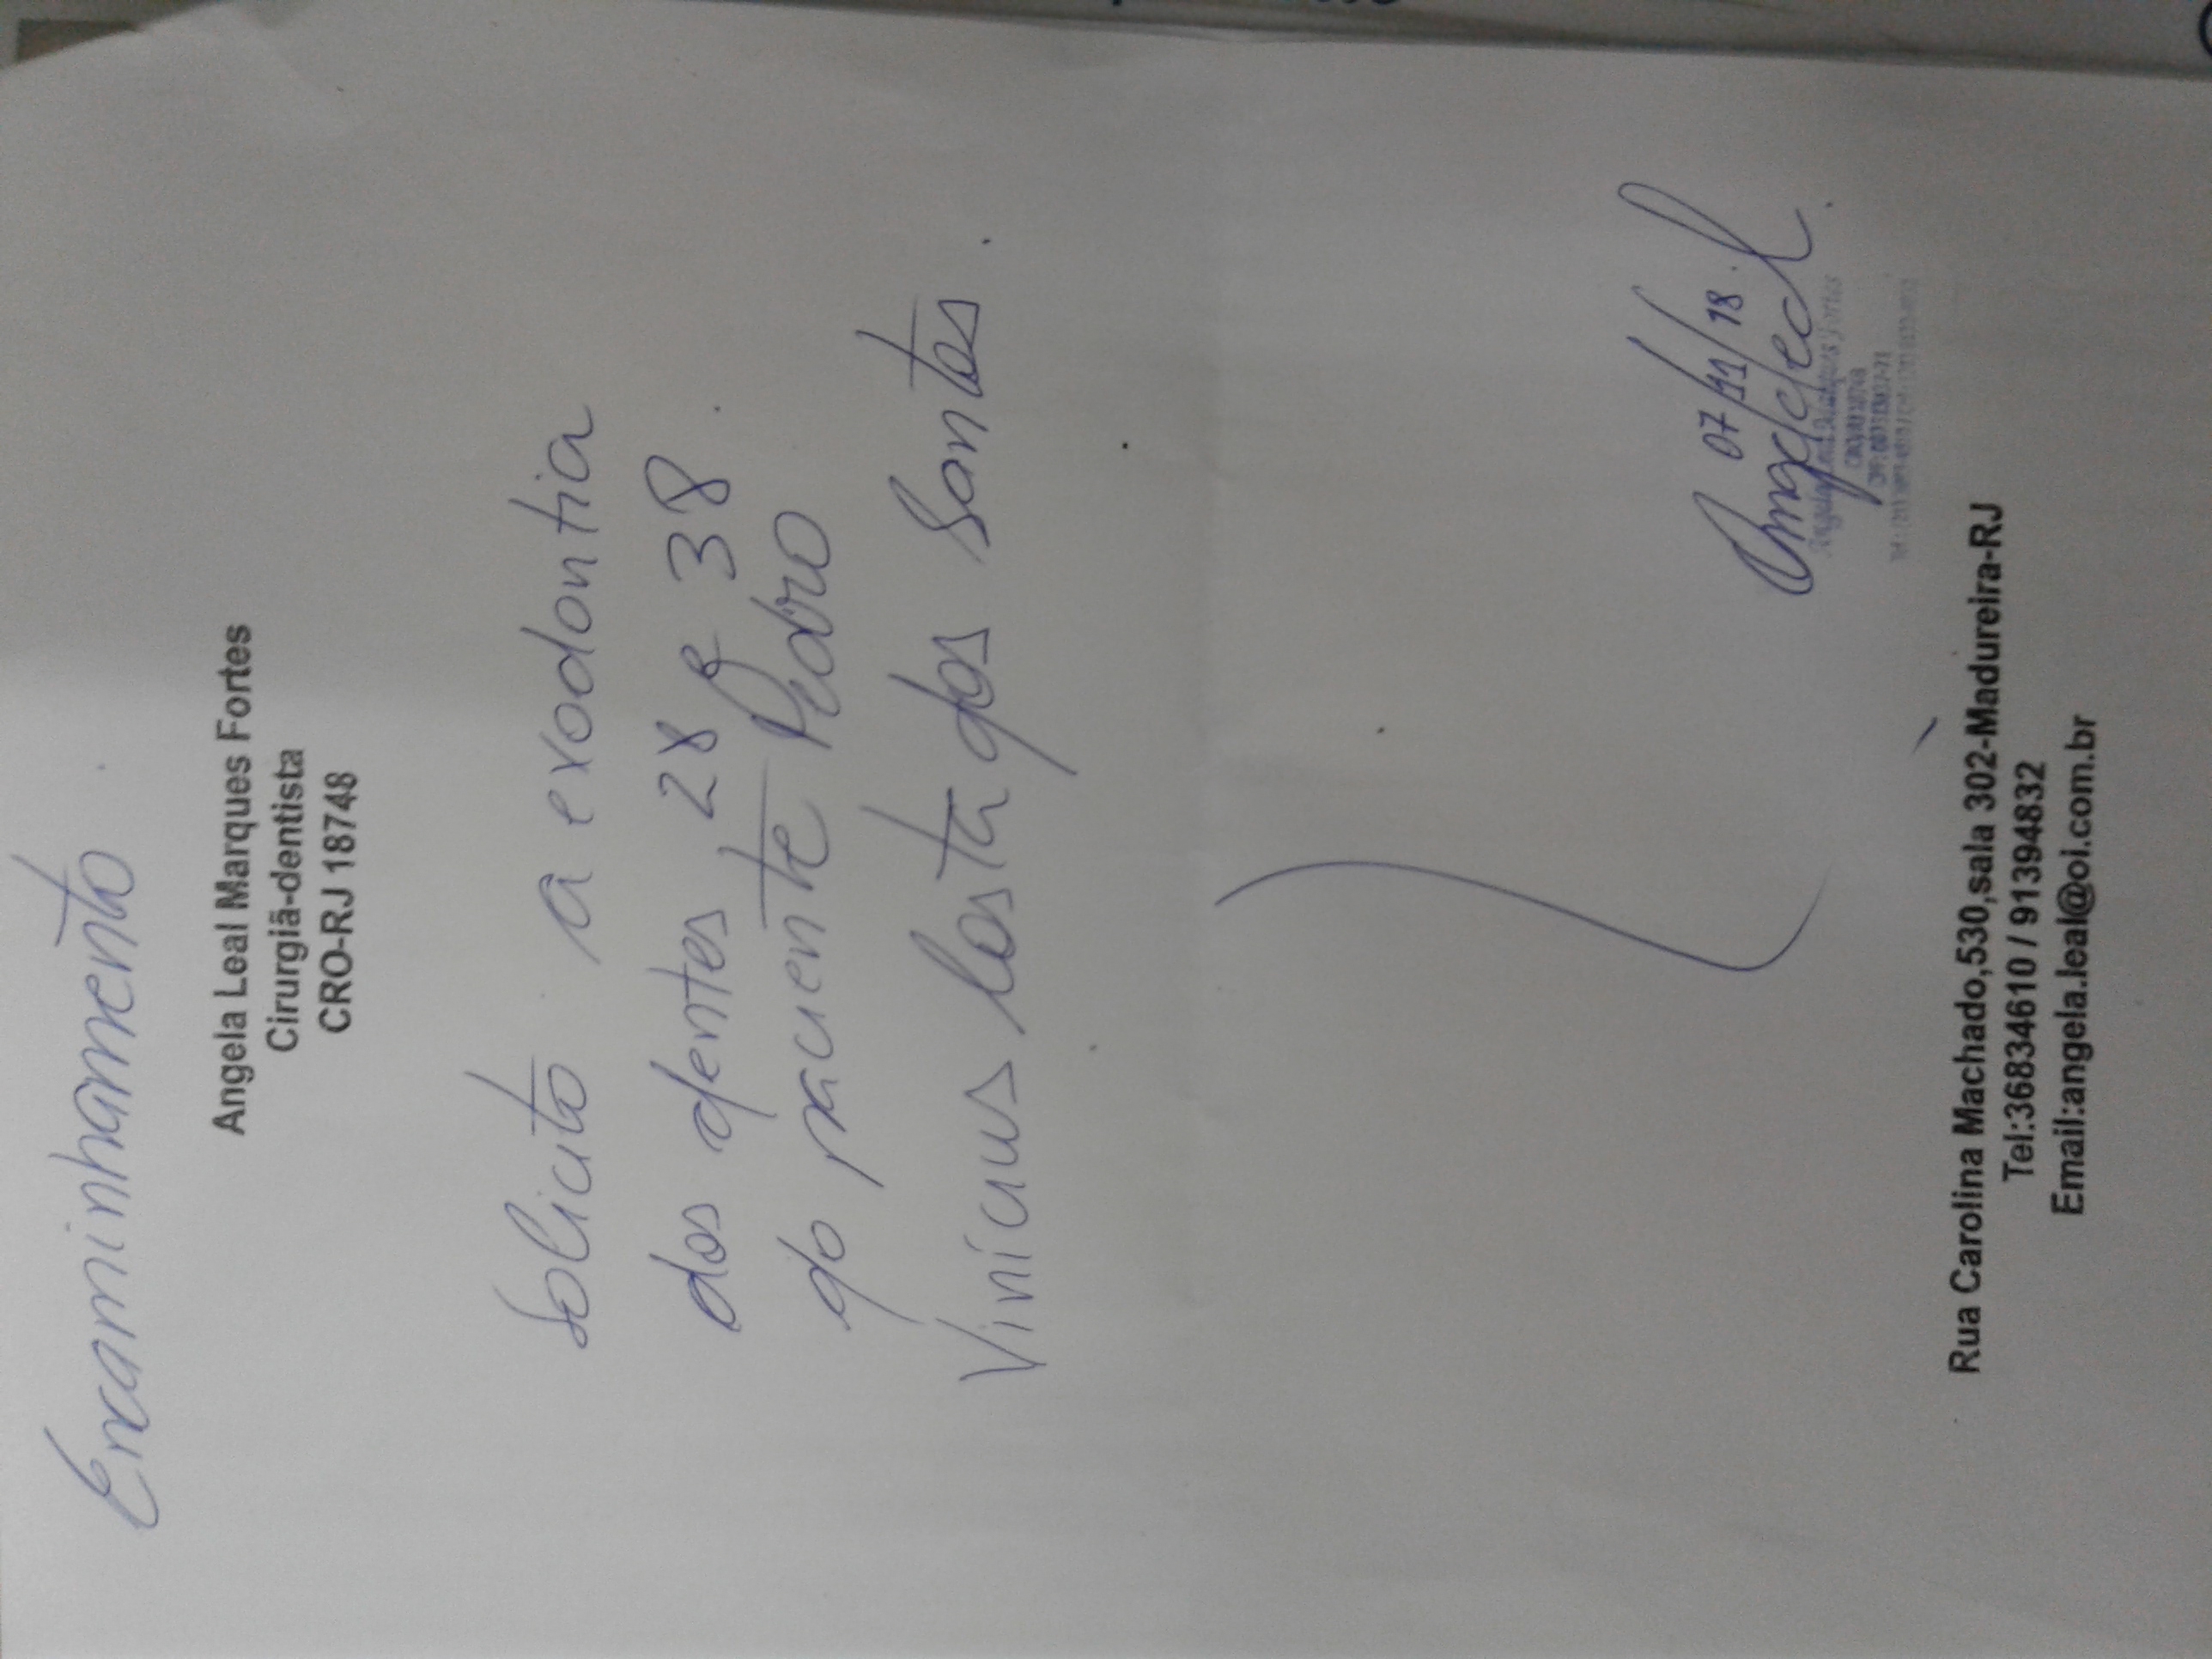 Encaminhamento
Angela Leal Marques Fortes
Cirurgiã-dentista
CRO-RJ 18748
Solicito a exodontia
dos dentes 28 e 38
do paciente Pedro
Vinícius Costa dos Santos.
07/11/18
Rua Carolina Machado,530,sala 302-Madureira-RJ
Tel:36834610 / 91394832
Email:angela.leal@oi.com.br